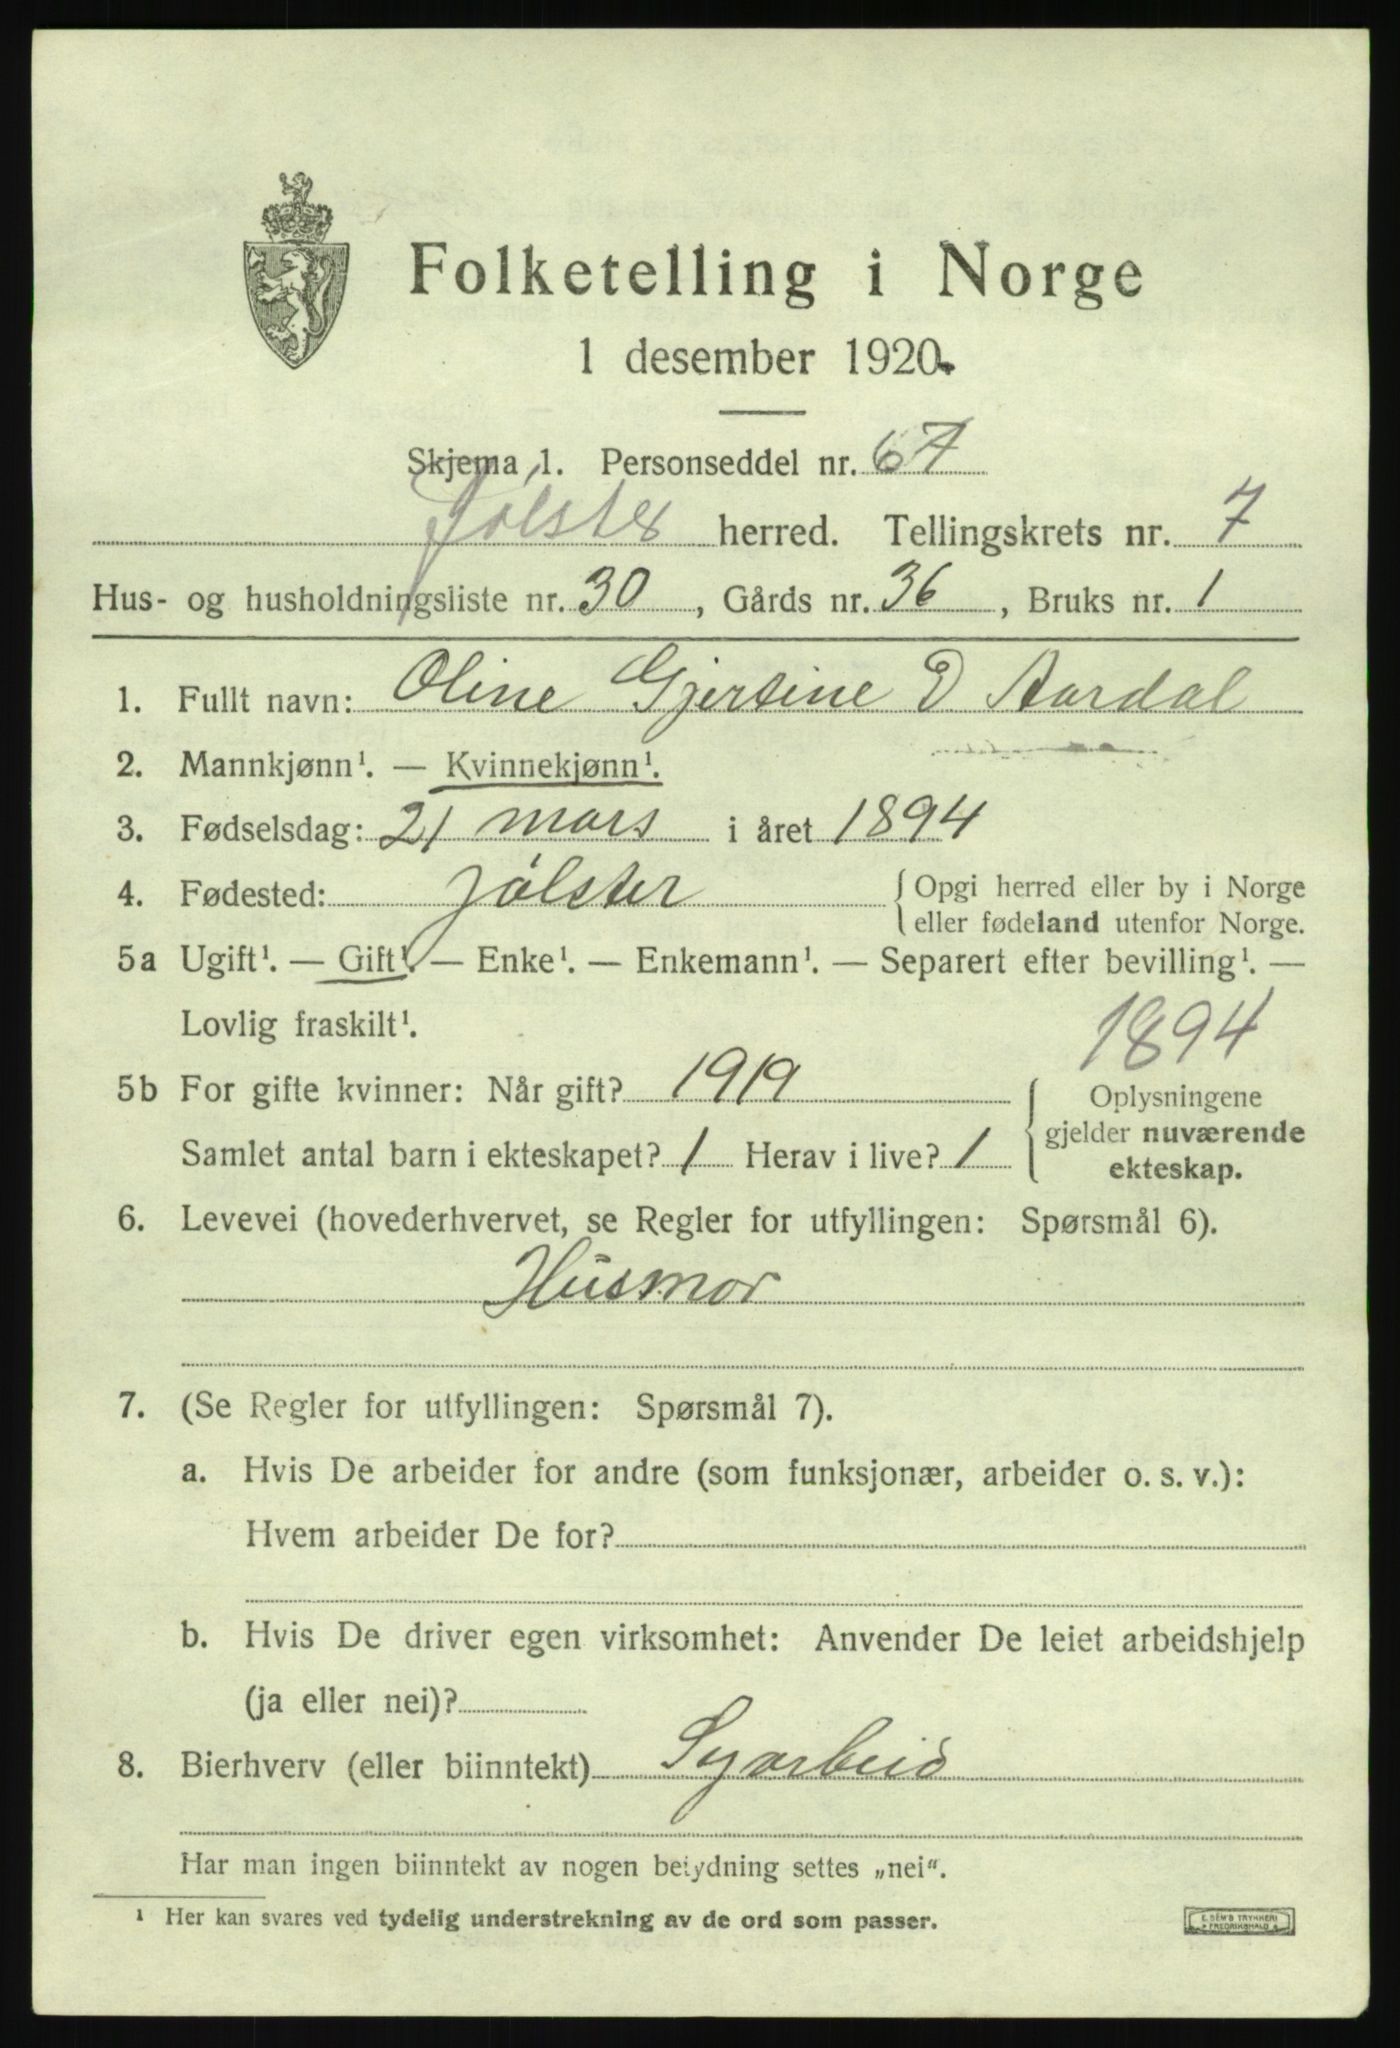 Folketelling i Norge
1 desember 1920.
Skjema 1. Personseddel nr. 67
Jølster herred. Tellingskrets nr. 7
Hus- og husholdningsliste nr. 30, Gårds nr. 36, Bruks nr. 1
1. Fullt navn: Oline Gjertine D Aardal
2. Mannkjønn¹. — Kvinnekjønn¹.
3. Fødselsdag: 21 mars i året 1894
4. Fødested: Jølster { Opgi herred eller by i Norge
eller fødeland utenfor Norge.
5a Ugift¹. — Gift¹. — Enke¹. — Enkemann¹. — Separert efter bevilling¹. —
Lovlig fraskilt¹.
1894
5b For gifte kvinner: Når gift? 1919
Samlet antal barn i ekteskapet? 1 Herav i live? 1
{ Oplysningene
gjelder nuværende
ekteskap.
6. Levevei (hovederhvervet, se Regler for utfyllingen: Spørsmål 6).
Husmor
7. (Se Regler for utfyllingen: Spørsmål 7).
a. Hvis De arbeider for andre (som funksjonær, arbeider o. s. v.):
Hvem arbeider De for?
b. Hvis De driver egen virksomhet: Anvender De leiet arbeidshjelp
(ja eller nei)?
8. Bierhverv (eller biinntekt) Syarbeid
Har man ingen biinntekt av nogen betydning settes „nei“.
¹ Her kan svares ved tydelig understrekning av de ord som passer.
E. SEM'S TRYKKERI
FREDRIKSHALD